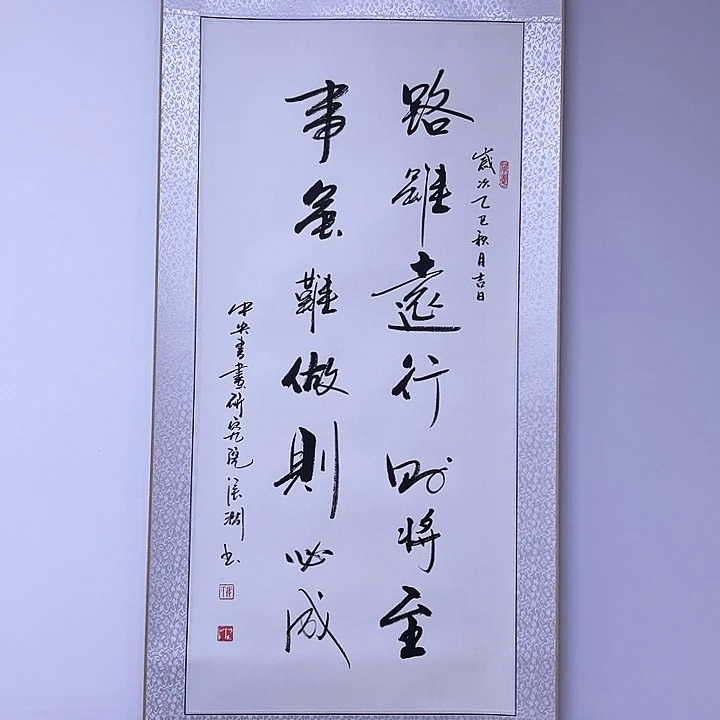 歲次乙巳秋月吉日
路雖遠行則將至
事虽難做則必成
中央書畫研究院 書